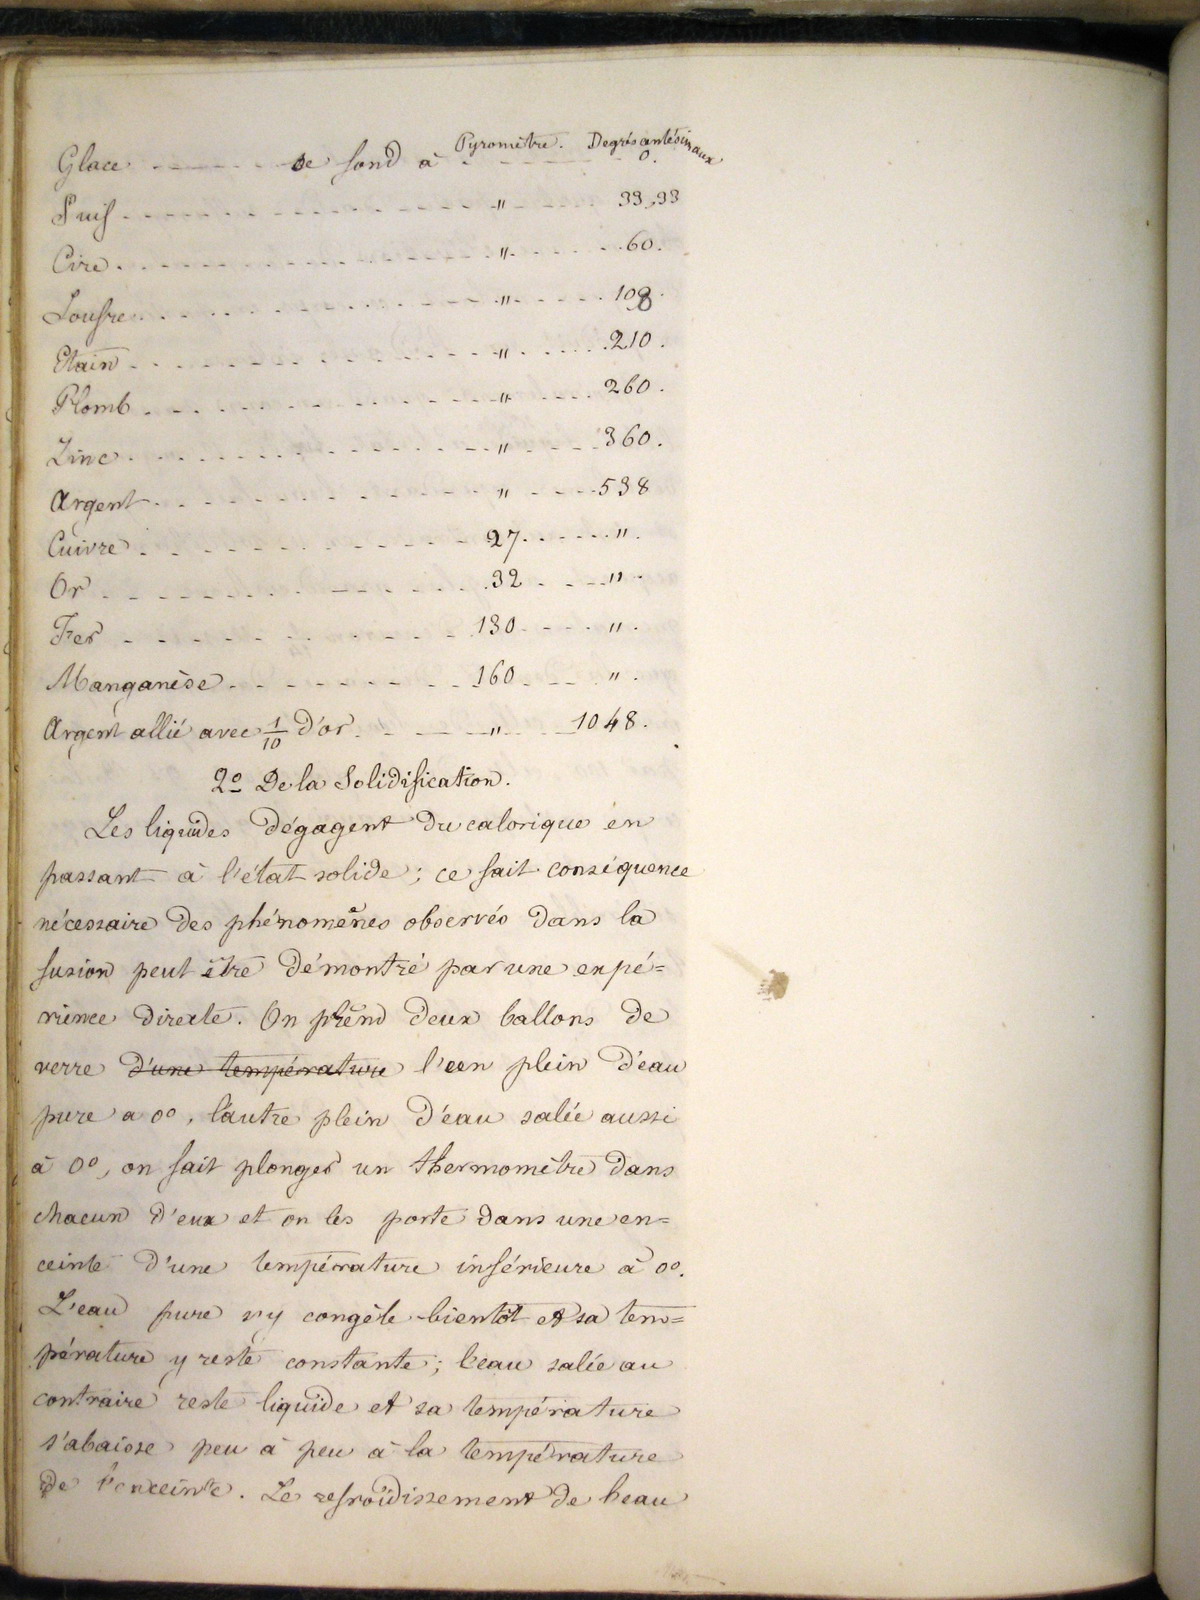 Pyromètre. Degrés centésimaux
Glace - - - - - - se fond à - - - - - - 0.
Suif - - - - - - - - - - - - " - - - - 33,33
Cire - - - - - - - - - - - - " - - - - 60.
Soufre - - - - - - - - - - - - " - - - - 108.
Etain - - - - - - - - - - - - " - - - - 210.
Plomb - - - - - - - - - - - - " - - - - 260.
Zinc - - - - - - - - - - - - " - - - - 360.
Argent - - - - - - - - - - - - " - - - - 538
Cuivre - - - - - - - - - - - - 27 - - - - ".
Or - - - - - - - - - - - - 32 - - - - ".
Fer - - - - - - - - - - - - 130 - - - - ".
Manganèse - - - - - - - - - 160 - - - - ".
Argent allié avec 1/10 d'or - - - - " - - - 1048.
2o De la Solidification.
Les liquides dégagent du calorique en
passant à l'état solide; ce fait conséquence
nécessaire des phénomènes observés dans la
fusion peut être démontré par une expé=
rience directe. On prend deux ballons de
verre d'une température l'un plein d'eau
pure a 0°, l'autre plein d'eau salée aussi
à 0°, on fait plonger un thermomètre dans
chacun d'eux et on les porte dans une en=
ceinte d'une température inférieure à 0°.
L'eau pure s'y congèle bientôt et sa tem=
pérature y reste constante; l'eau salée au
contraire reste liquide et sa température
s'abaisse peu à peu à la température
de l'enceinte. Le refroidissement de l'eau